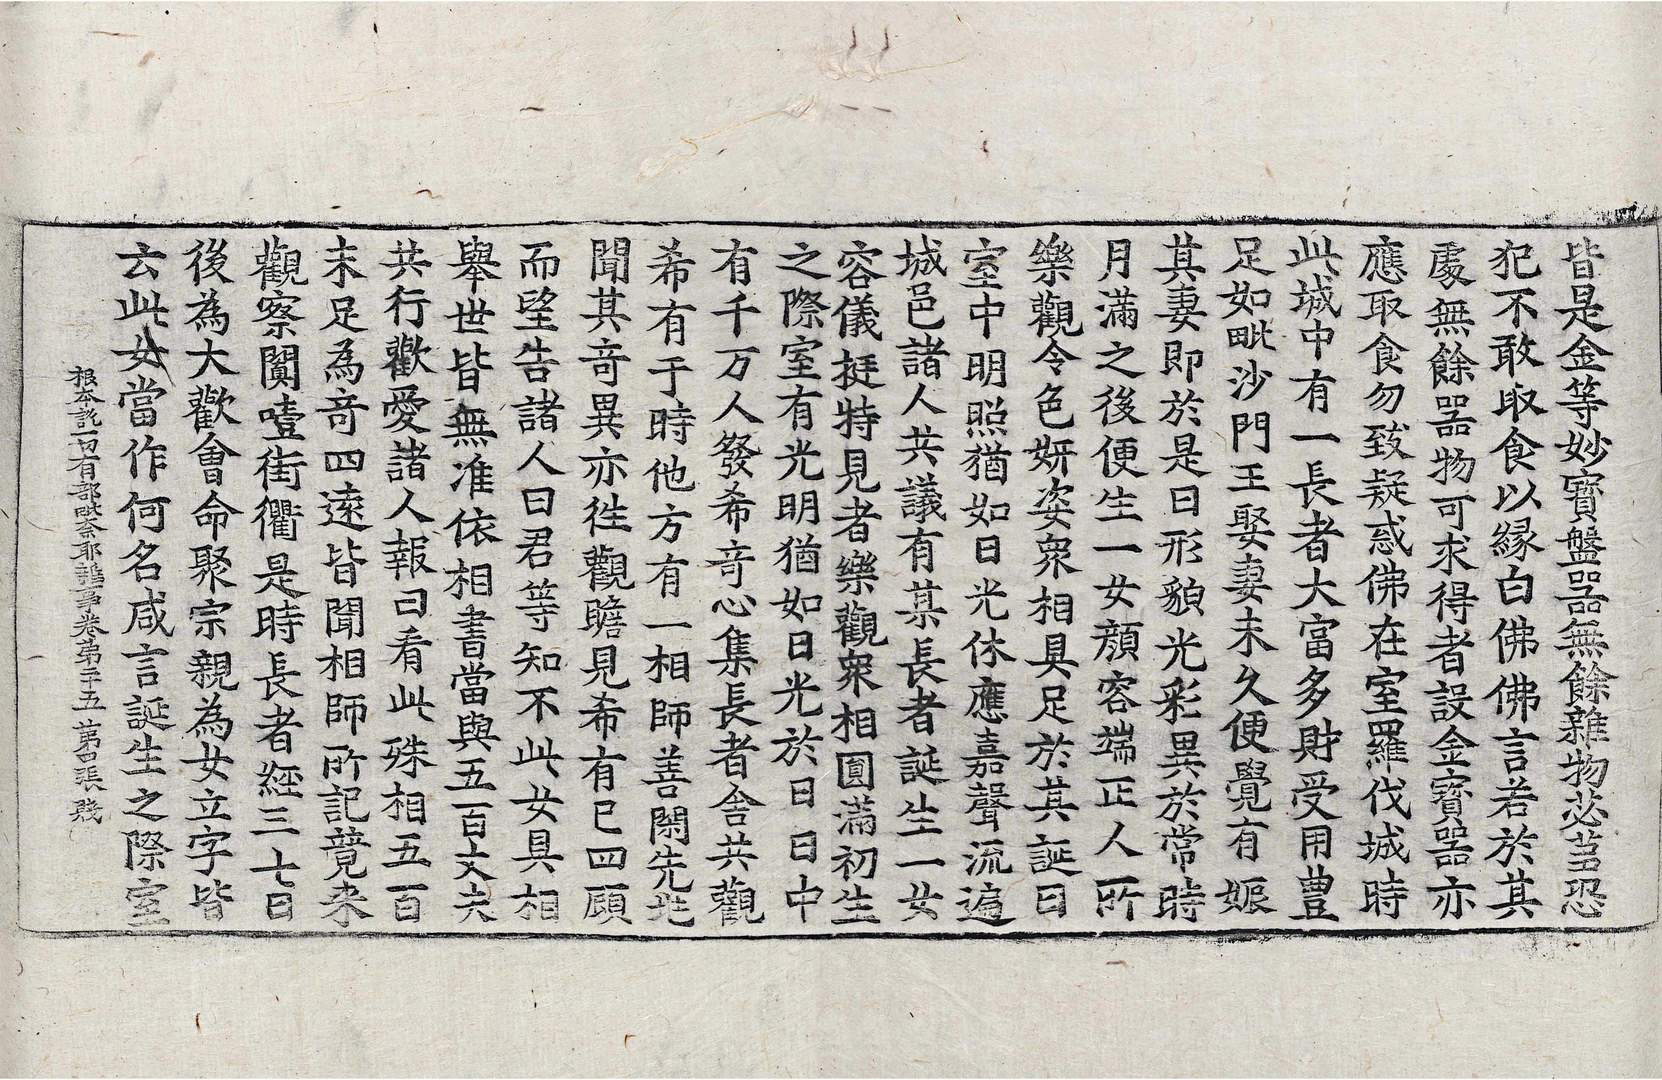 皆是金等妙寶盤器無餘雜物苾芻恐
犯不敢取食以緣白佛佛言若於其
處無餘器物可求得者設金寶器亦
應取食勿致疑惑佛在室羅伐城時
此城中有一長者大富多財受用豊
足如毗沙門王娶妻未久便覺有娠
其妻即於是日形貌光彩異於常時
月滿之後便生一女顏容端正人所
樂觀令色妍姿衆相具足於其誕日
室中明照猶如日光休應嘉聲流遍
城邑諸人共議有某長者誕生一女
容儀挺特見者樂觀衆相圓滿初生
之際室有光明猶如日光於日日中
有千万人發希竒心集長者舍共觀
希有于時他方有一相師善閑先兆
聞其竒異亦往觀瞻見希有已四顧
而望告諸人曰君等知不此女具相
舉世皆無准依相書當與五百丈夫
共行歡愛諸人報曰看此殊相五百
未足為竒四遠皆聞相師所記競来
觀察闐噎街衢是時長者經三七日
後為大歡會命聚宗親為女立字皆
云此女當作何名咸言誕生之際室
根本說一切有部毗奈耶雜事卷第三十五 第四張 賤